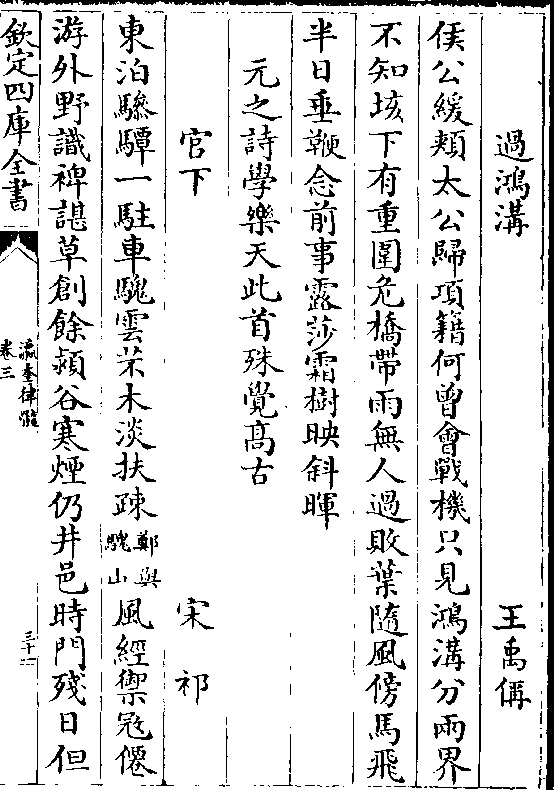 過鴻溝 王禹偁
侯公緩頰太公歸項籍何曾會戰機只見鴻溝分兩界
不知垓下有重圍危橋帶雨無人過敗葉隨風傍馬飛
半日垂鞭念前事露莎霜樹映斜暉
元之詩學樂天此首殊覺高古
官下 宋祁
東泊驂驔一駐車騩雲苯木淡扶疎鄭與騩山風經禦冦僊
游外野識裨諶草創餘潁谷寒煙仍井邑時門殘日但
欽定四庫全書 瀛奎律髓 卷三 三十一